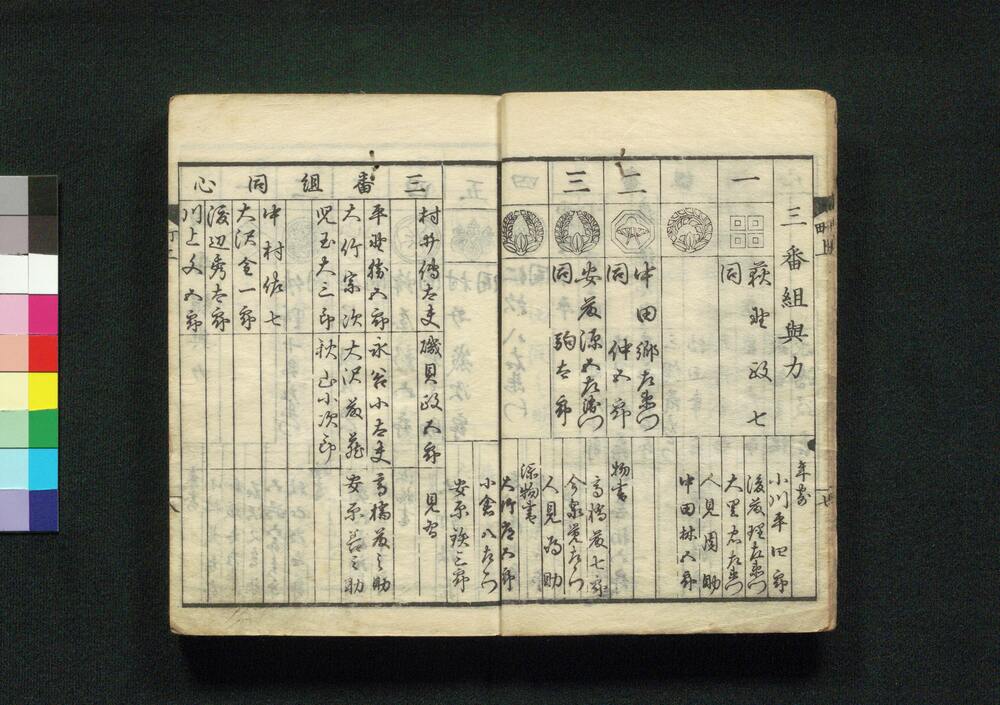 三番組與力
一
萩野政七
同
二
中田郷左衛門
同 仲五郎
三
安藤源五左衛門
同 駒太郎
年寄
小川平四郎
後藤理左衛門
人見周助
中田林五郎
物書
高橋藤七郎
今泉覚左衛門
人見為助
添物書
大竹彦五郎
小倉八左衛門
安原鉄三郎
三番組同心
村井傳太夫
磯貝政五郎
見習
平野勝五郎
永谷小太夫
高橋藤之助
大竹宗次
大沢藤蔵
安原長之助
児玉夫三郎
秋山小次郎
中村佐七
大沢金一郎
渡辺秀太郎
川上文五郎